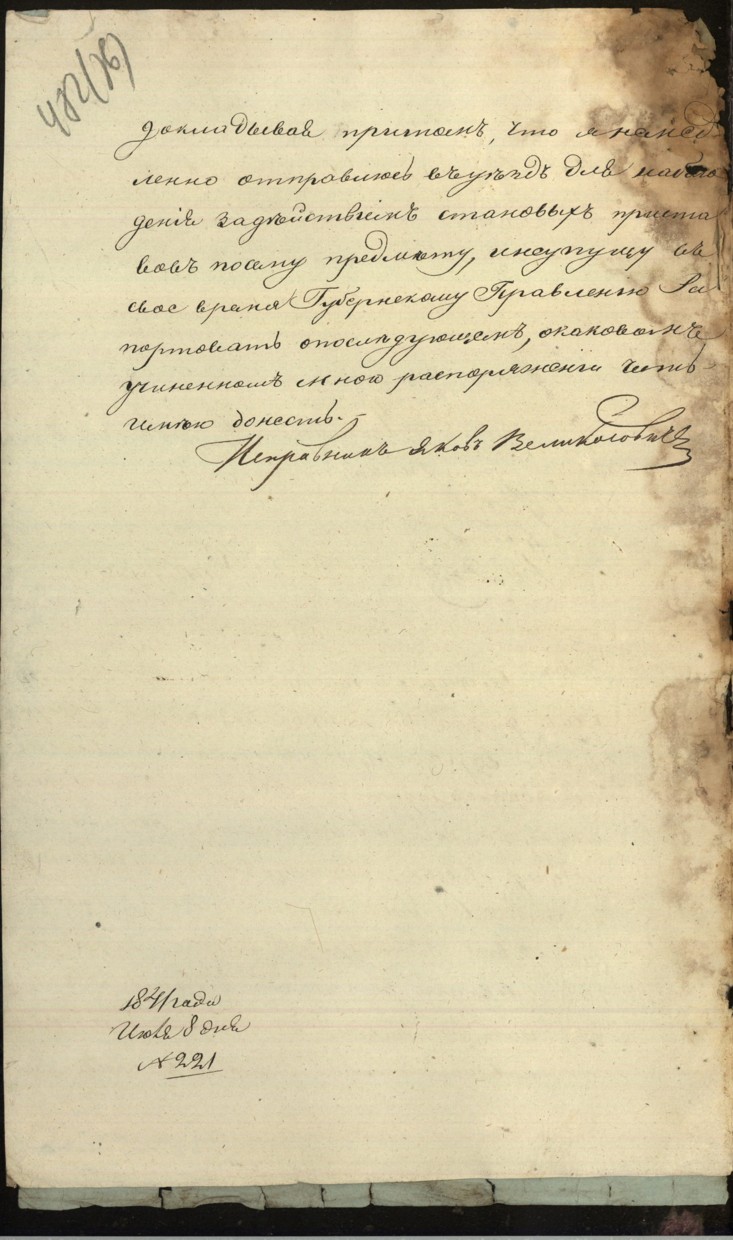 482(об)
докладывая притомъ, что я намед
ленно отправлюсь въ уѣздъ для наблю
денія задѣйствіемъ становыхъ приста
вовъ посему предмѣту, инеупущу въ
свое время Губернскому Правленію Ра
портовать опослѣдующемъ, окаковомъ
учиненномъ мною распоряженіи честь
имѣю донесть.
Исправникъ Яковъ Великосовичъ
1841 года
Июля 8 дня
№ 221